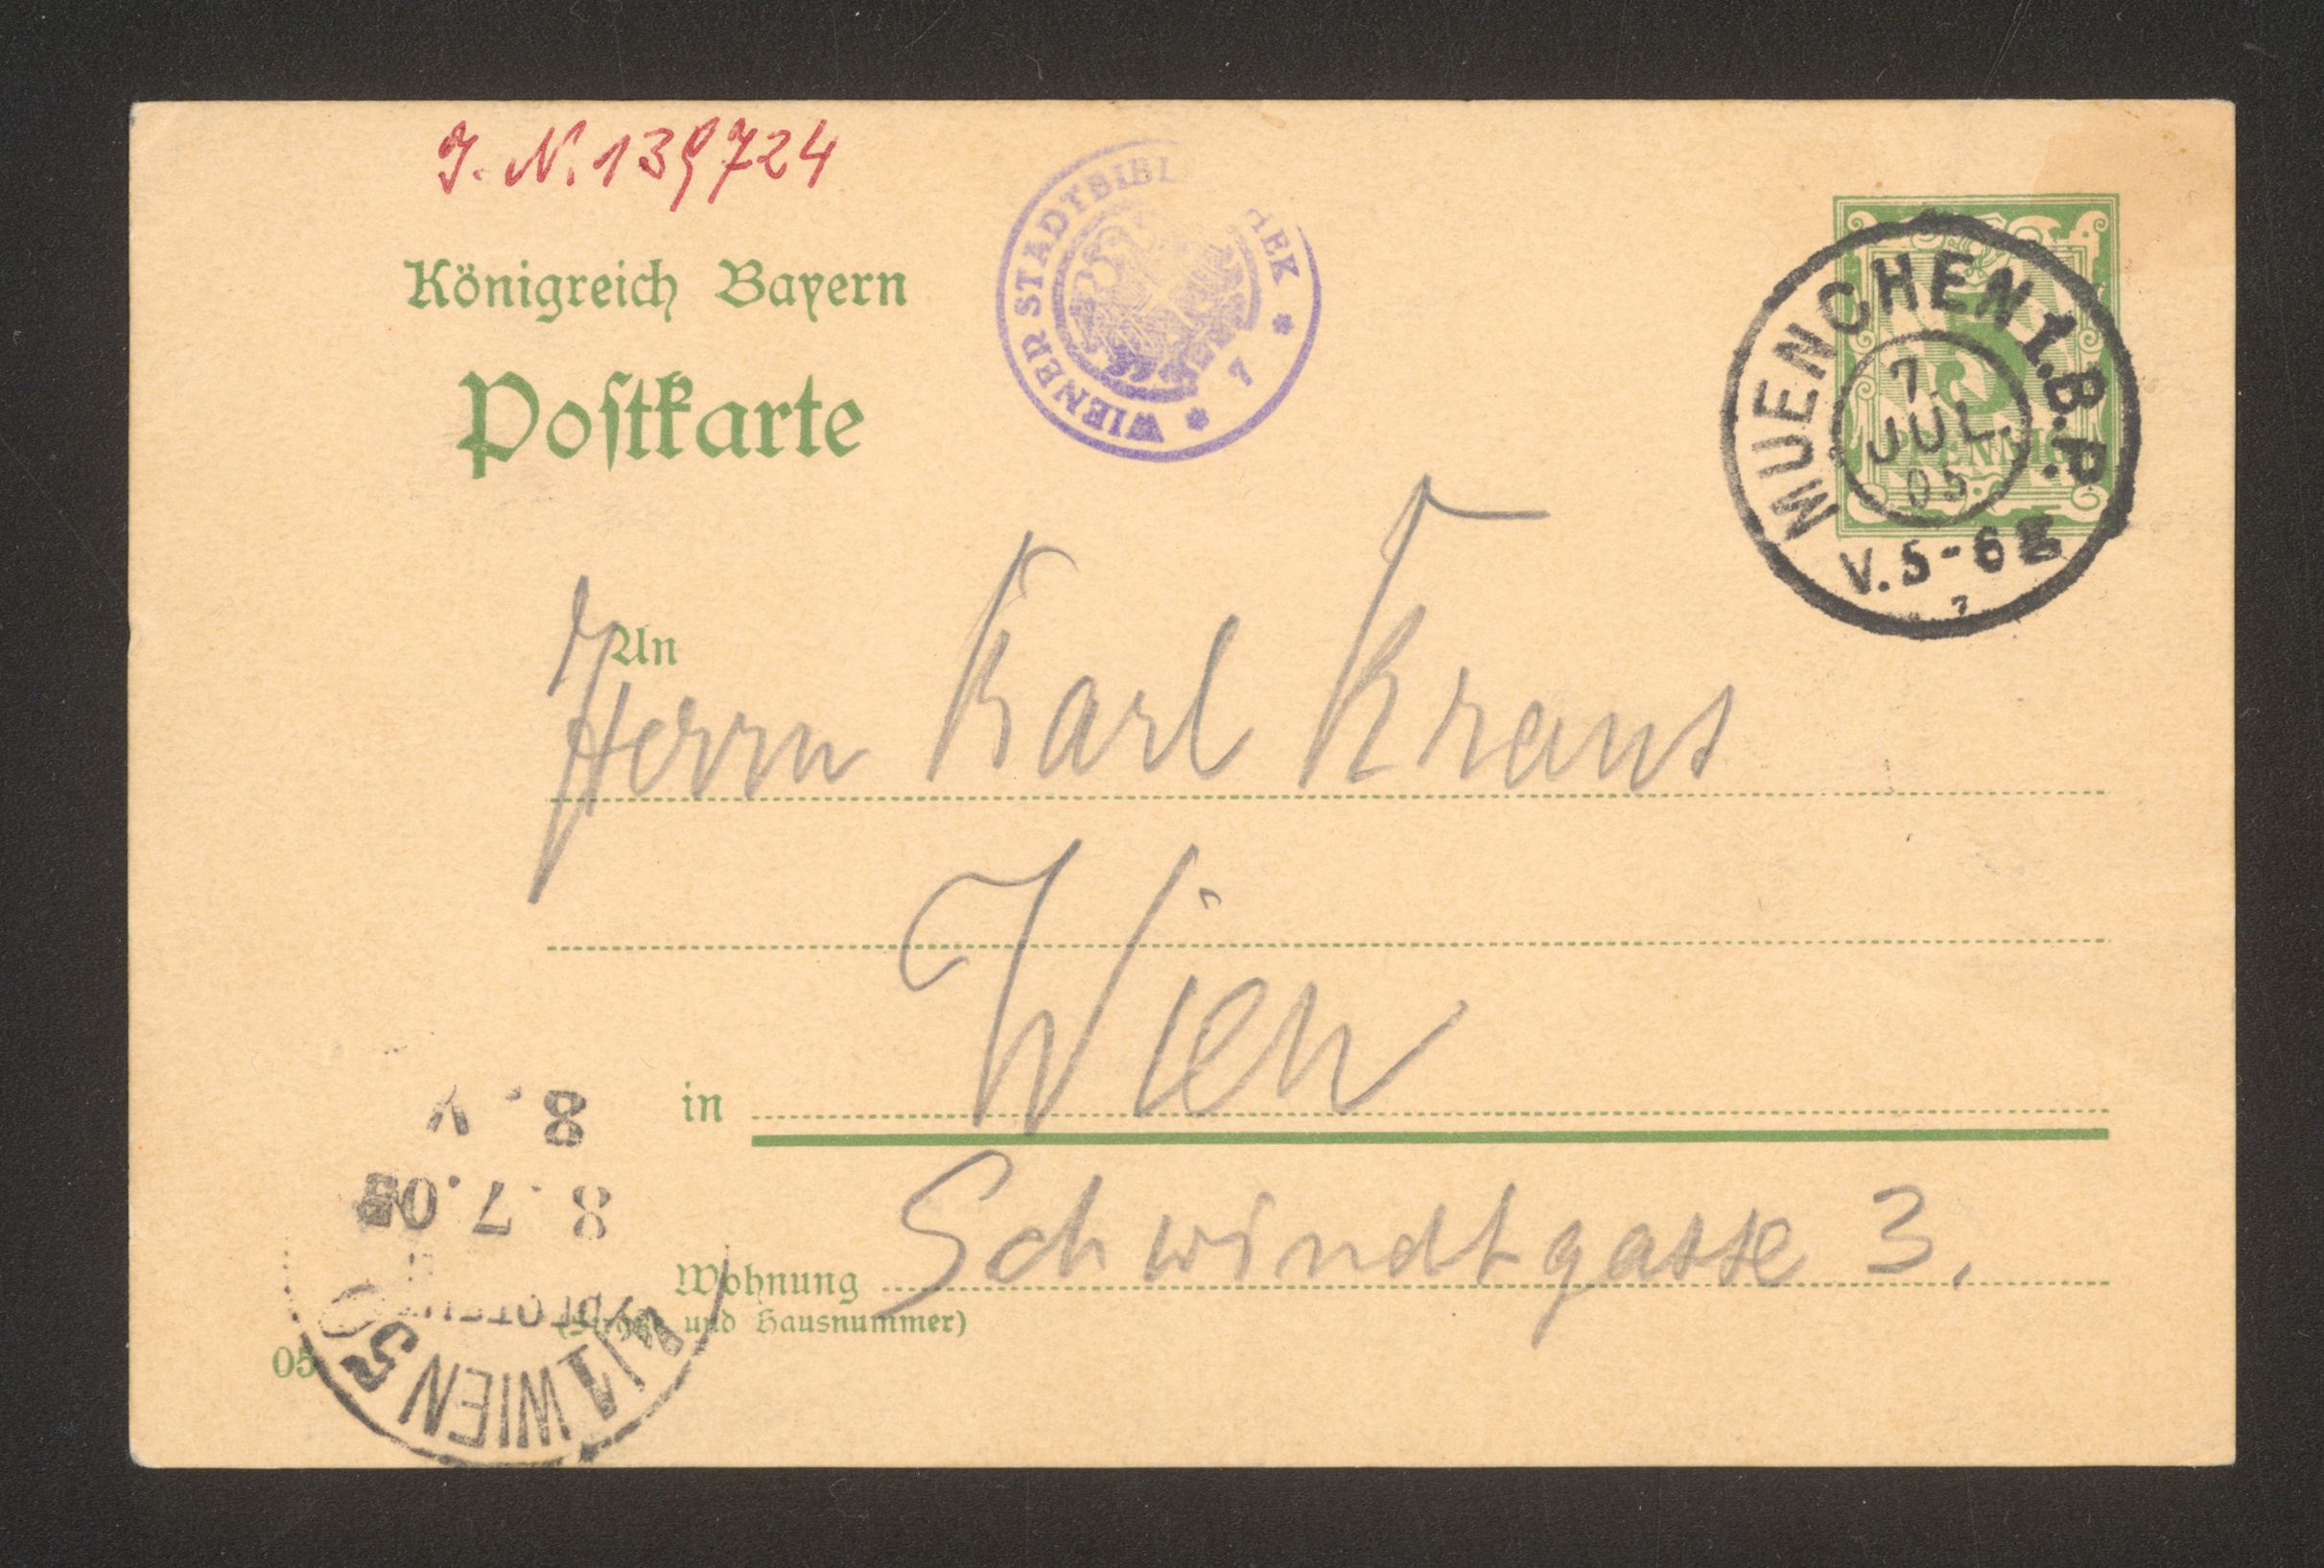 J. N. 139724
WIENER STADTBIBL HEK * 7 *
Königreich Bayern
Postkarte
5
PFENNIG
MUENCHEN 1. B.P.
7
JUL.
05
V. 5-6
7
An
Herrn Karl Kraus
in Wien
Wohnung Schwindtgasse 3.
(Straße und Hausnummer)
05
8. V
8.7.05
WIEN 50